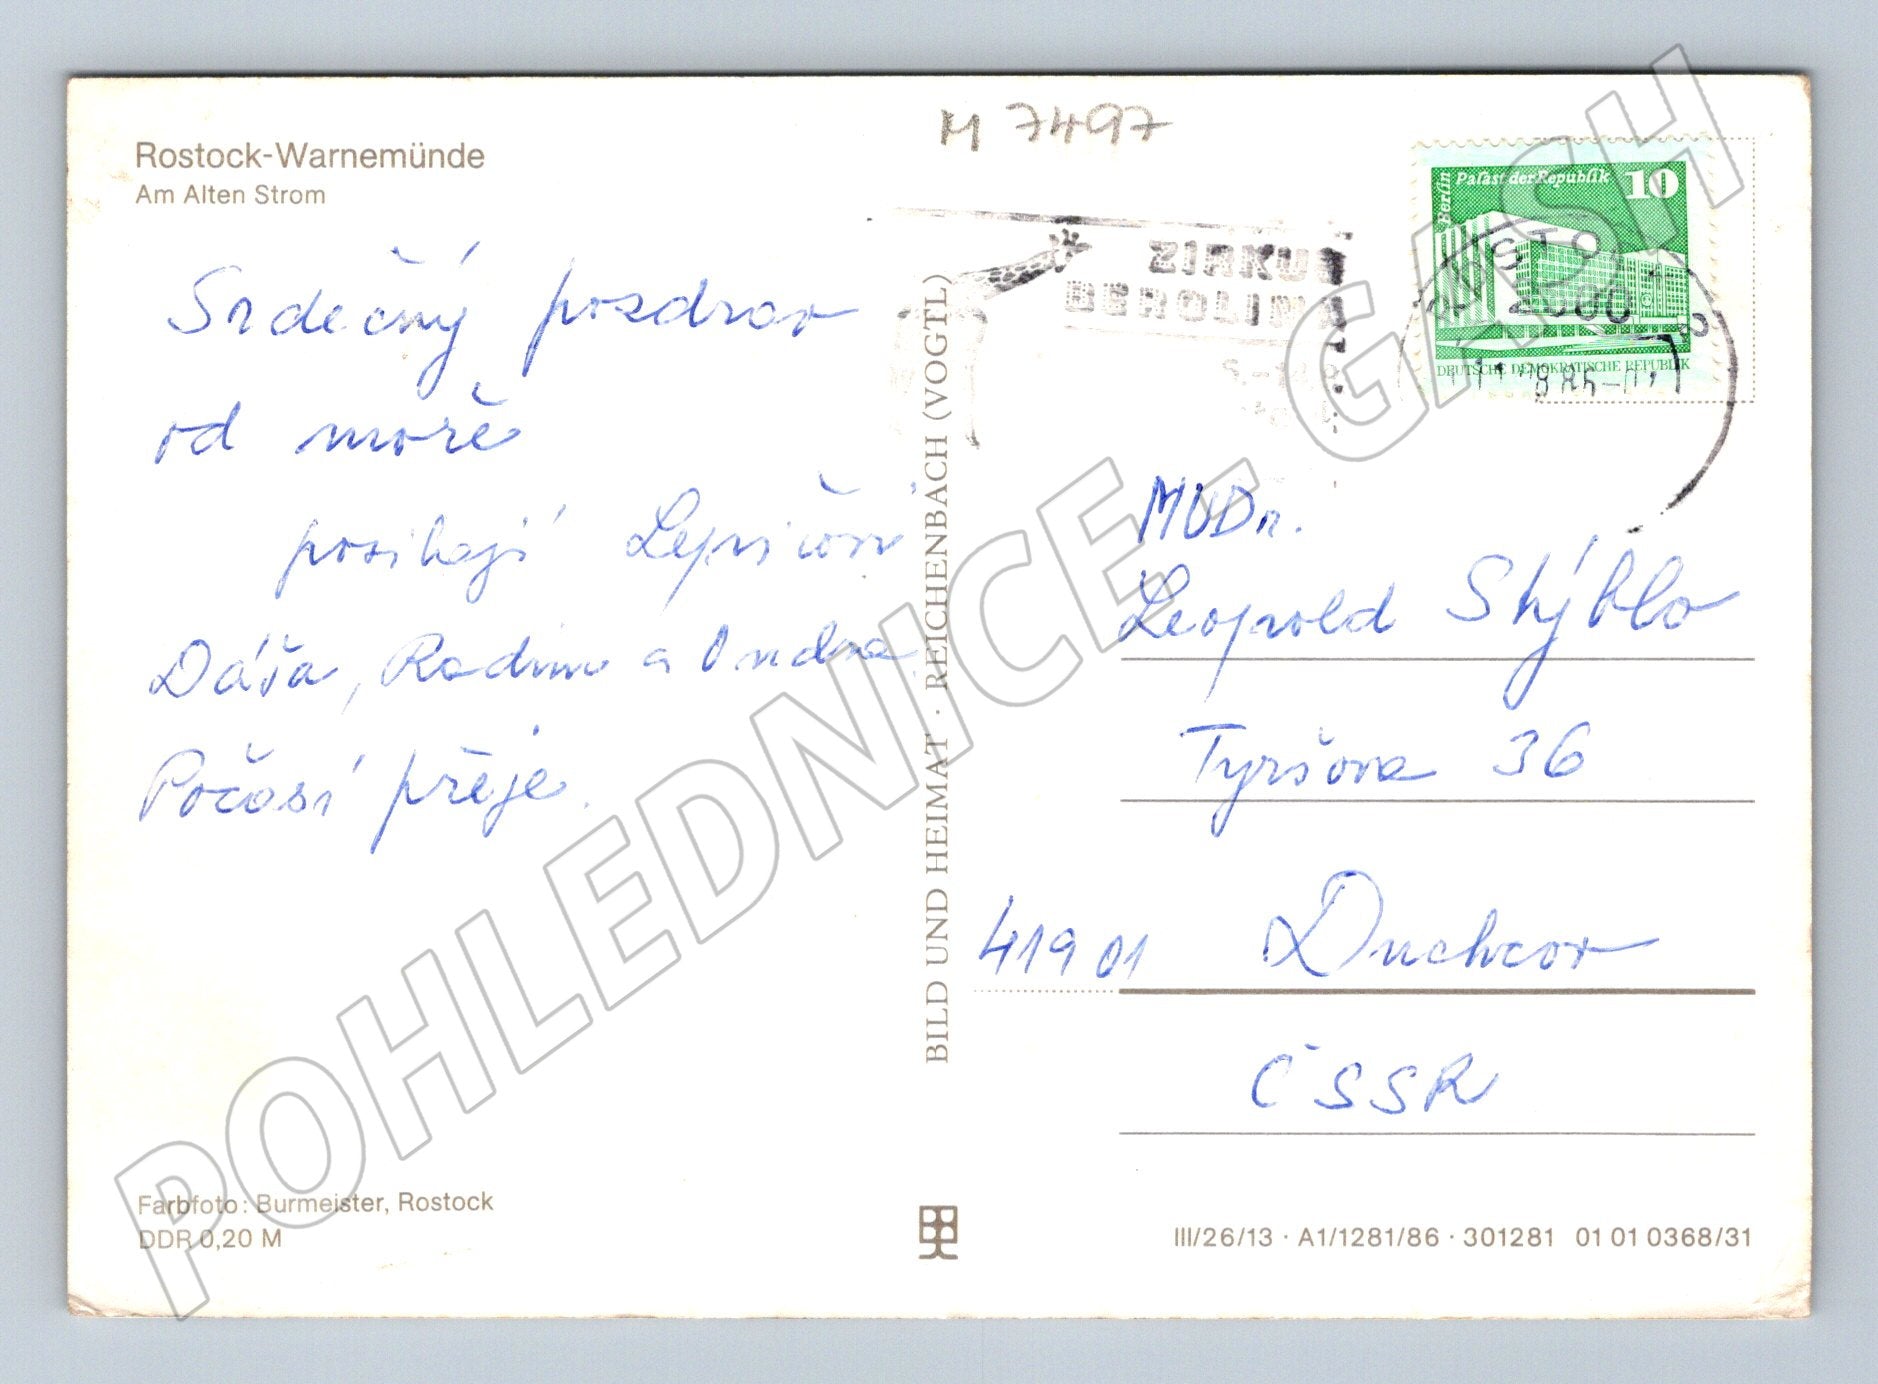 Rostock-Warnemünde
Am Alten Strom
M 7497
Srdečný pozdrav
od moře
posílají Lepičovi
Dáša, Radim a Ondra
Počasí přeje.
Farbfoto: Burmeister, Rostock
DDR 0,20 M
BILD UND HEIMAT · REICHENBACH (VOGTL)
ZIRKUS
BEROLINA
Berlin
Palast der Republik 10
DEUTSCHE DEMOKRATISCHE REPUBLIK
MUDr.
Leopold Stýblo
Tyršova 36
419 01 Duchcov
ČSSR
III/26/13 · A1/1281/86 · 301281 01 01 0368/31
POHLEDNICE - GASH